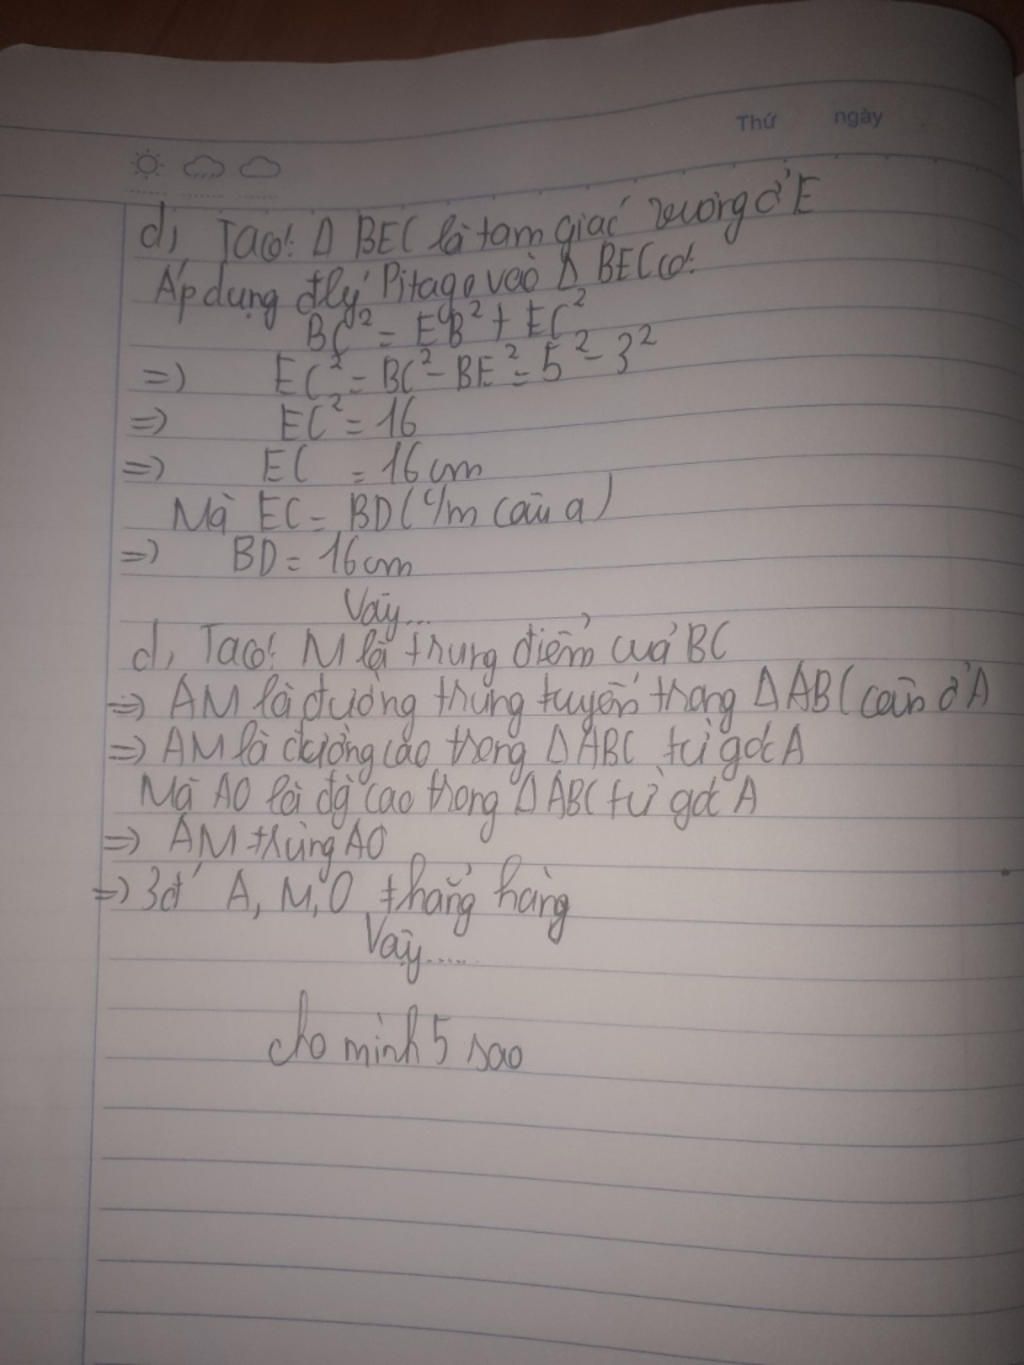 Thứ ngày
d, Ta có: Δ BEC là tam giác vuông ở E
Áp dụng đlý Pitago vào Δ BEC có:
BC² = EB² + EC²
=> EC² = BC² - BE² = 5² - 3²
=> EC² = 16
=> EC = 16 cm
Mà EC = BD (c/m câu a)
=> BD = 16 cm
Vậy...
d, Ta có: M là trung điểm của BC
=> AM là đường trung tuyến trong Δ ABC cân ở A
=> AM là đường cao trong Δ ABC từ góc A
Mà AO là đg cao trong Δ ABC từ góc A
=> AM trùng AO
=> 3đ' A, M, O thẳng hàng
Vậy.....
cho mình 5 sao